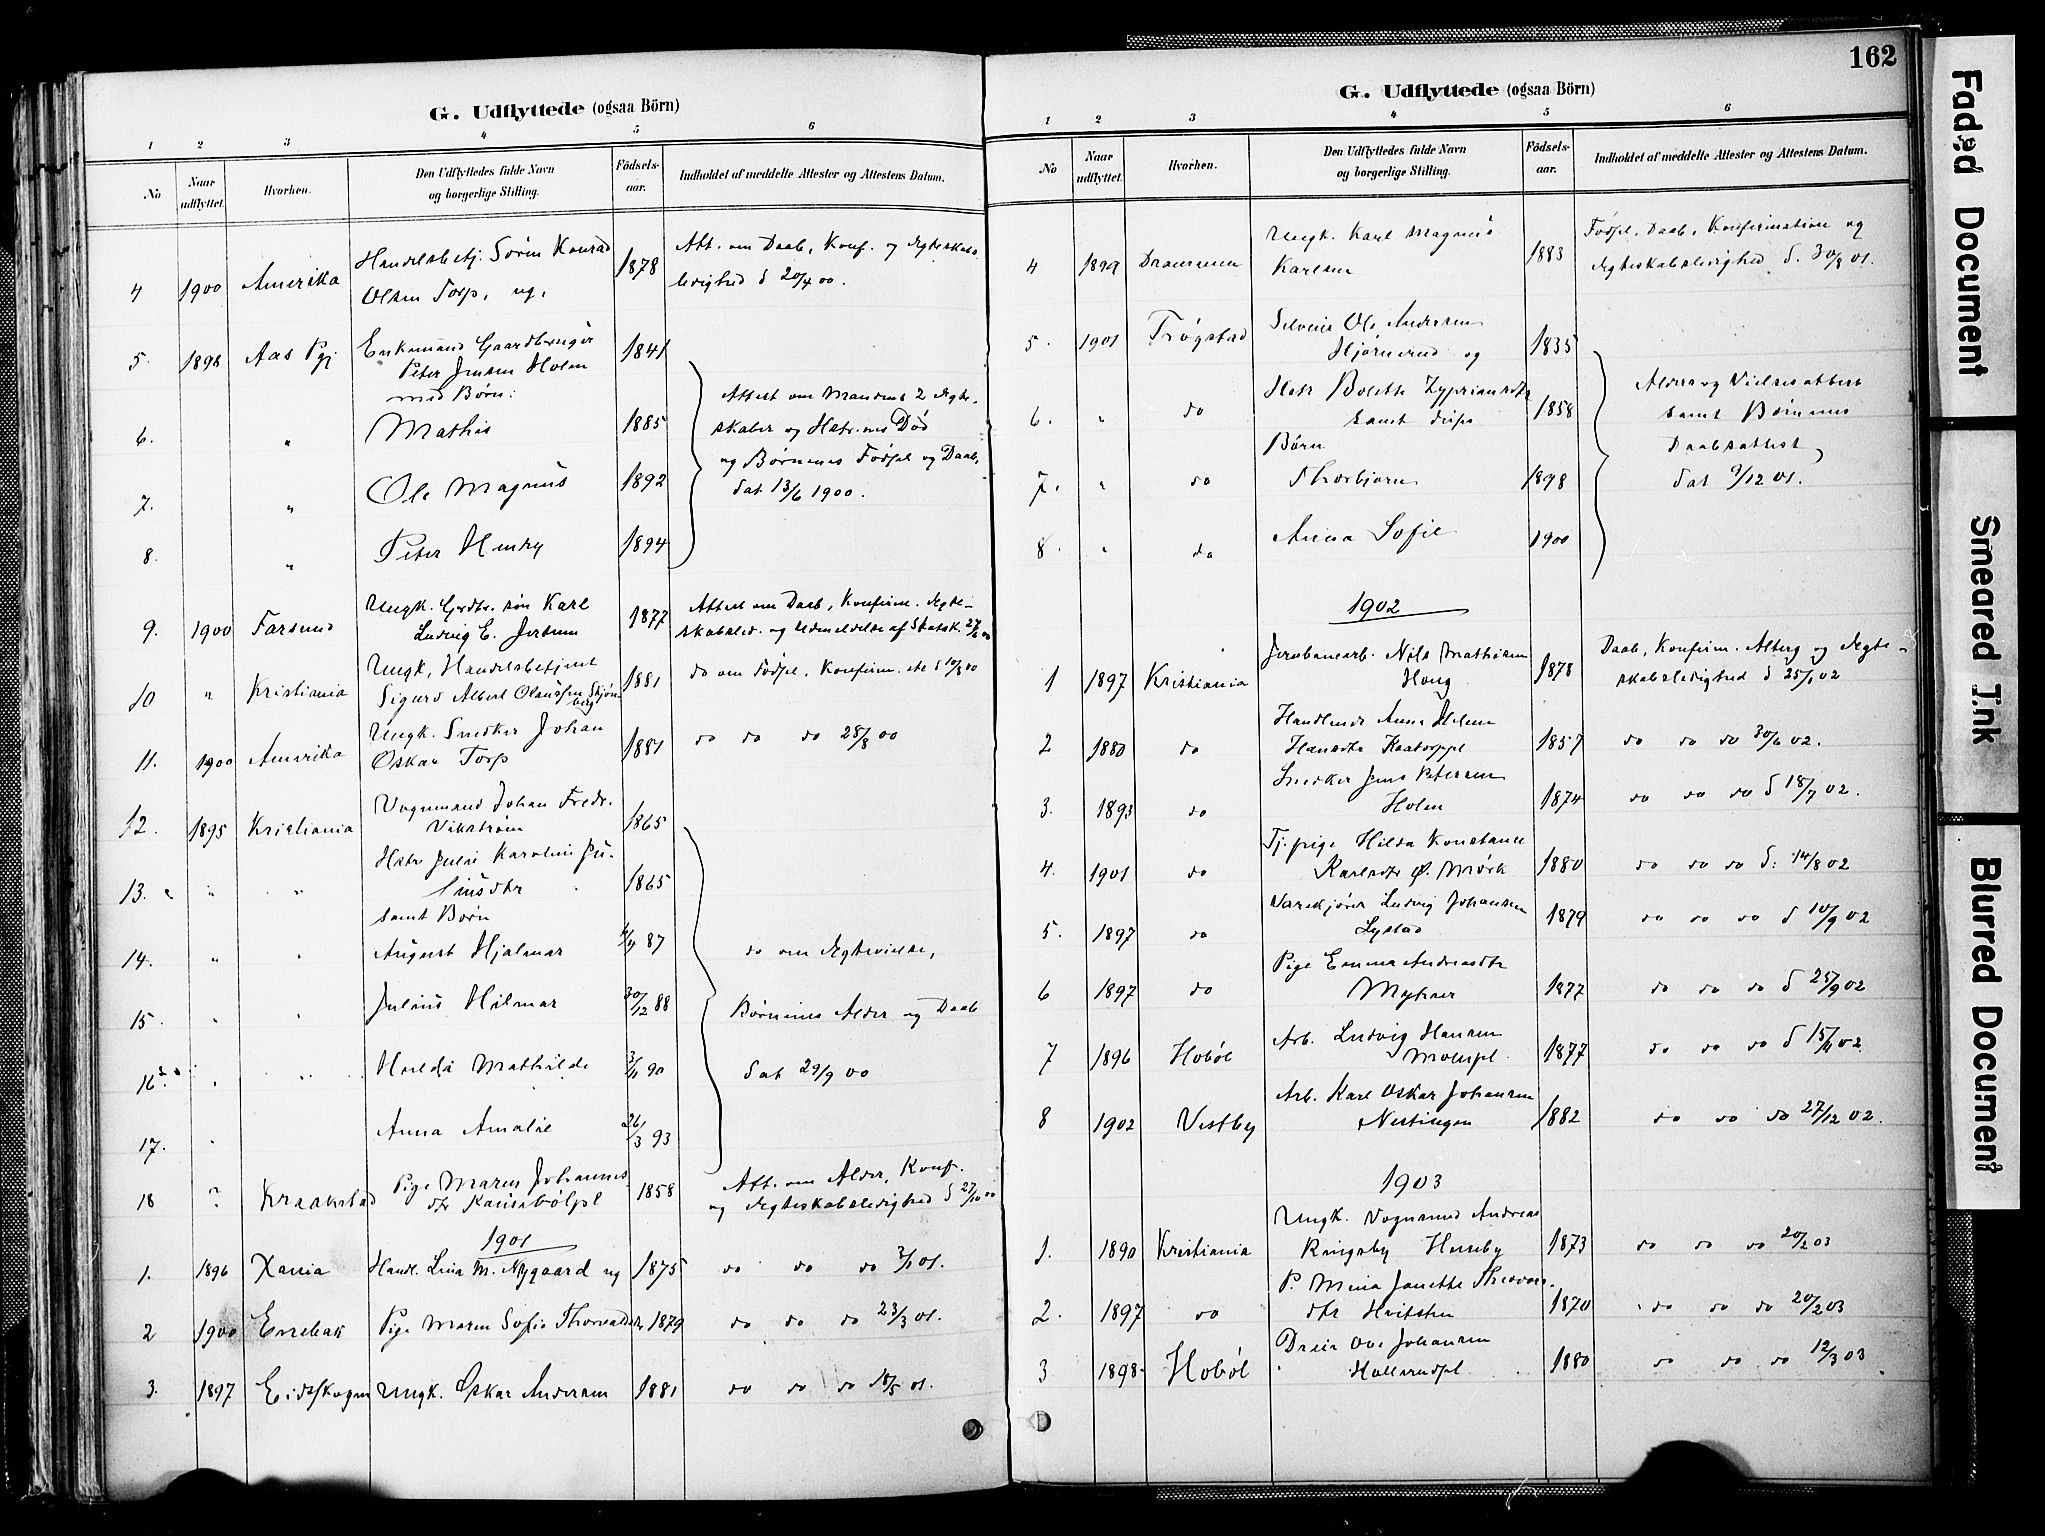 162
G. Udflyttede (ogsaa Börn)
1 2 3 4 5 6
No
Naar udflyttet.
Hvorhen.
Den Udflyttedes fulde Navn og borgerlige Stilling.
Födsels-aar.
Indholdet af meddelte Attester og Attestens Datum.
4 1900 Amerika Handelsbetj. Sörin Konrad 1878 Att. om Daab, Konf. og Ægteskabs
Olsen Torp, ug. ledighed d 20/4 00.
5. 1898 Aas Pgj Enkemand Gaardbruger 1841
Peter Jensen Holen
med Børn:
6. " Mathis 1885 Attest om Mandens 2 Ægte-
skaber og Hstr.nes Död
7. " Ole Magnus 1892 og Børnenes Fødsel og Daab,
dat 13/6 1900.
8. " Peter Henry 1894
9. 1900 Farsund Ungk. Grdbr. søn Karl 1877 Attest om Daab, Konfirm. Ægte-
Ludvig E. skabsled. og Udmeldelse af Statsk. 27/6 00
10 " Kristiania Ungk, Handelsbetjent 1881 do om Fødsel, Konfirm. etc d 10/8 00
Sigurd Albert Olaussen Skjønberg
11. 1900 Amerika Ungk. Snedker Johan 1881 do do do 28/8 00
Oskar Torp
12. 1895 Kristiania Vognmand Johan Fredr. 1865
Vikstrøm
13. " " Hstr Julie Karoline Ju- 1865
liusdtr
samt Børn
14. " " August Hjalmar 4/4 87 do om Ægtevielse,
15. " " Julius Hilmar 30/12 88 Børnenes Alder og Daab
16 " " Hulda Mathilde 3/11 90 dat 29/9 00
17. " Anna Amalie 26/3 93
18 ? Kraakstad Pige Maren Johannes- 1858 Att. om Alder, Konf.
dtr og Ægteskabsledighed d 27/10 00
1901
1. 1896 Xania Handl. Lina M. Nygaard ug 1875 do do do 3/1 01.
2 1900 Enebak Pige Maren Sofie Thorvaldsdtr 1879 do do do 23/3 01.
3. 1897 Eidskogen Ungk. Oskar Andersen 1881 do do do 18/5 01.
G. Udflyttede (ogsaa Börn)
1 2 3 4 5 6
No
Naar udflyttet.
Hvorhen.
Den Udflyttedes fulde Navn og borgerlige Stilling.
Födsels-aar.
Indholdet af meddelte Attester og Attestens Datum.
4 1899 Drammen Ungk. Karl Magnus 1883 Fødsel, Daab, Konfirmation og
Karlsen Ægteskabsledighed d. 30/8 01.
5. 1901 Trøgstad Selveier Ole Andersen 1835
Hjørnerud og
6. " do Hstr Bolette Zypriansdtr 1858 Alders og Vielsesattest
samt deres samt Børnenes
Børn Daabsattest
7. " do Thorbjørn 1898 dat 9/12 01.
8. " do Anna Sofie 1900
1902
1 1897 Kristiania Jernbanearb. Nils Mathisen 1878 Daab, Konfirm. Alterg og Ægte-
Haug skabsledighed d 25/1 02
2 1880 do Handlende Anna Helene 1857 do do do 30/6 02.
Hansdtr
3. 1893 do Snedker Jens Petersen 1874 do do do d 18/7 02.
Holen
4. 1901 do Tj. pige Hilda Konstance 1880 do do do d: 14/8 02
Karlsdtr Ø. Mørk
5. 1897 do Varekjører Ludvig Johansen 1879 do do do d 10/9 02
Lystad
6 1897 do Pige Emma Andreasdtr 1877 do do do d 25/9 02
Myhrer
7 1896 Hobøl Arb. Ludvig Hansen 1877 do do do d 15/11 02
8 1902 Vestby Arb. Karl Oskar Johansen 1882 do do do 27/12 02.
Nestingen
1903
1. 1890 Kristiania Ungk. Vognmand Andreas 1873 do do do 20/2 03
Ringsby Huseby
2. 1897 do P. Mina Janette Theodors- 1870 do do do 20/2 03
dtr Hvitsten
3 1898 Hobøl Dreier Ole Johansen 1880 do do do 12/3 03
Hallerudpl
Faded Document
Smeared Ink
Blurred Document